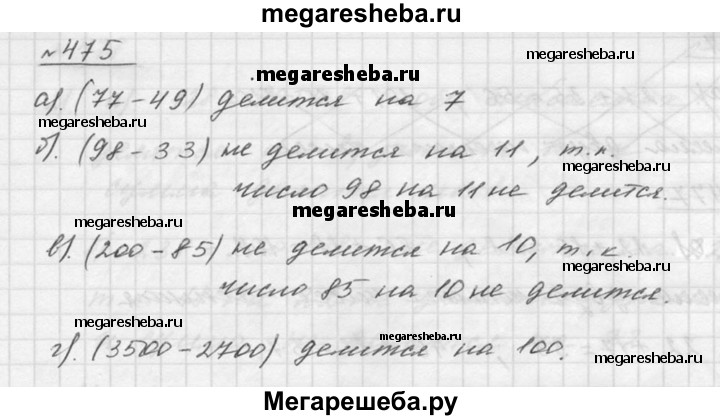 megaresheba.ru
№475
megaresheba.ru
а). (77-49) делится на 7
megaresheba.ru
б). (98-33) не делится на 11, т.к.
megaresheba.ru
число 98 на 11 не делится.
megaresheba.ru
в). (200-85) не делится на 10, т.к.
megaresheba.ru
число 85 на 10 не делится.
megaresheba.ru
megaresheba.ru
г). (3500-2700) делится на 100.
megaresheba.ru
Мегарешеба.ру